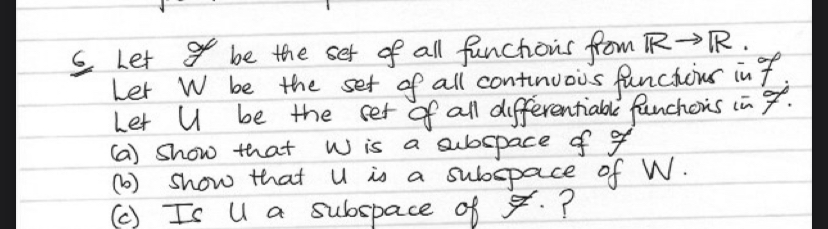 6 Let ℱ be the set of all functions from ℝ→ℝ.
Let W be the set of all continuous functions in ℱ.
Let U be the set of all differentiable functions in ℱ.
(a) Show that W is a subspace of ℱ
(b) Show that U is a subspace of W.
(c) Is U a subspace of ℱ.?